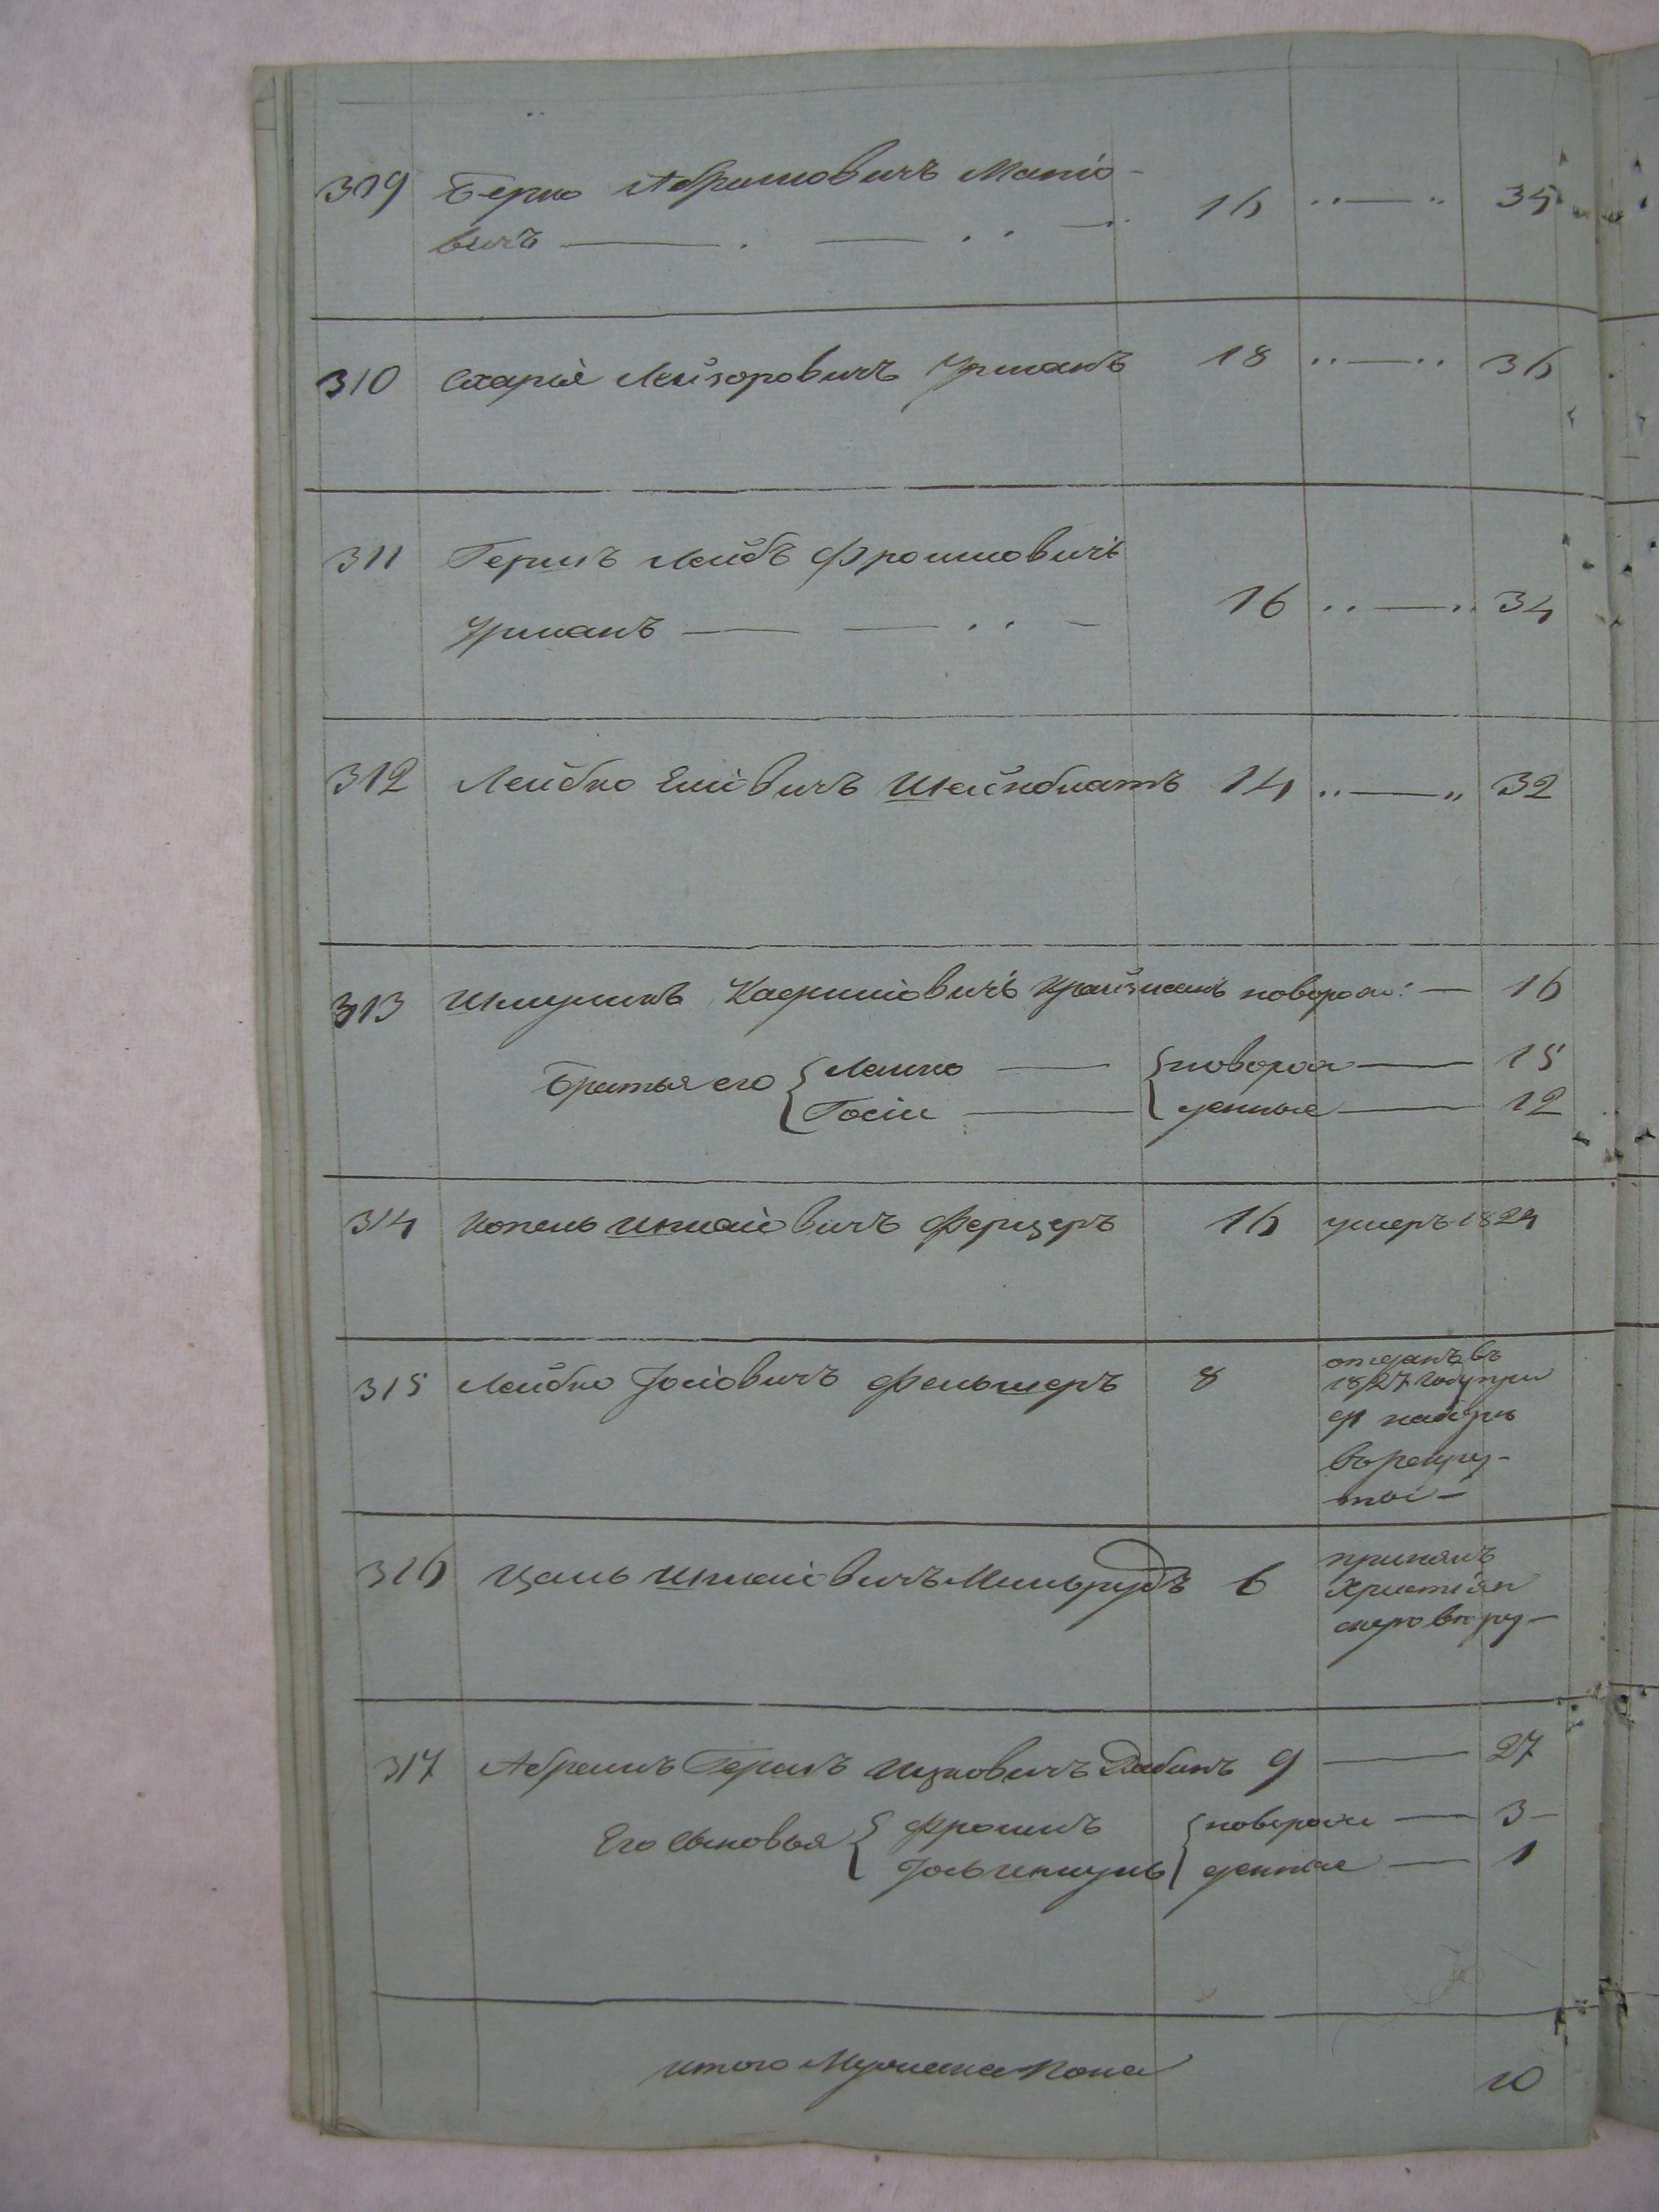 309 Берко Абрамовичъ Маніо-
вичъ 16 34
310 Сахарія Лейзоровичъ Урманъ 18 36
311 Гершъ Лейбъ Фроимовичъ
Урманъ 16 34
312 Лейбко Еліовичъ Шейнблатъ 14 32
313 Шмуликъ Крайзманъ новорож: 16
Братья его { Лейко { новорож 15
Іосій денные 12
314 Копель Шмаіовичъ Ферцеръ 16 умеръ 1824
315 Лейбко Іосіовичъ Фельшеръ 8 отданъ въ
1827 году при
наборѣ
въ рекру-
ты
316 Цаль Шмаіовичъ Мильрудъ 6 принялъ
Христіян
скую вѣру
317 Абрамъ Гершъ Ицковичъ 9 27
Его сыновья { Фроимъ { новорож 3
Іось Шмуль денные 1
итого Мужеска Пола 10